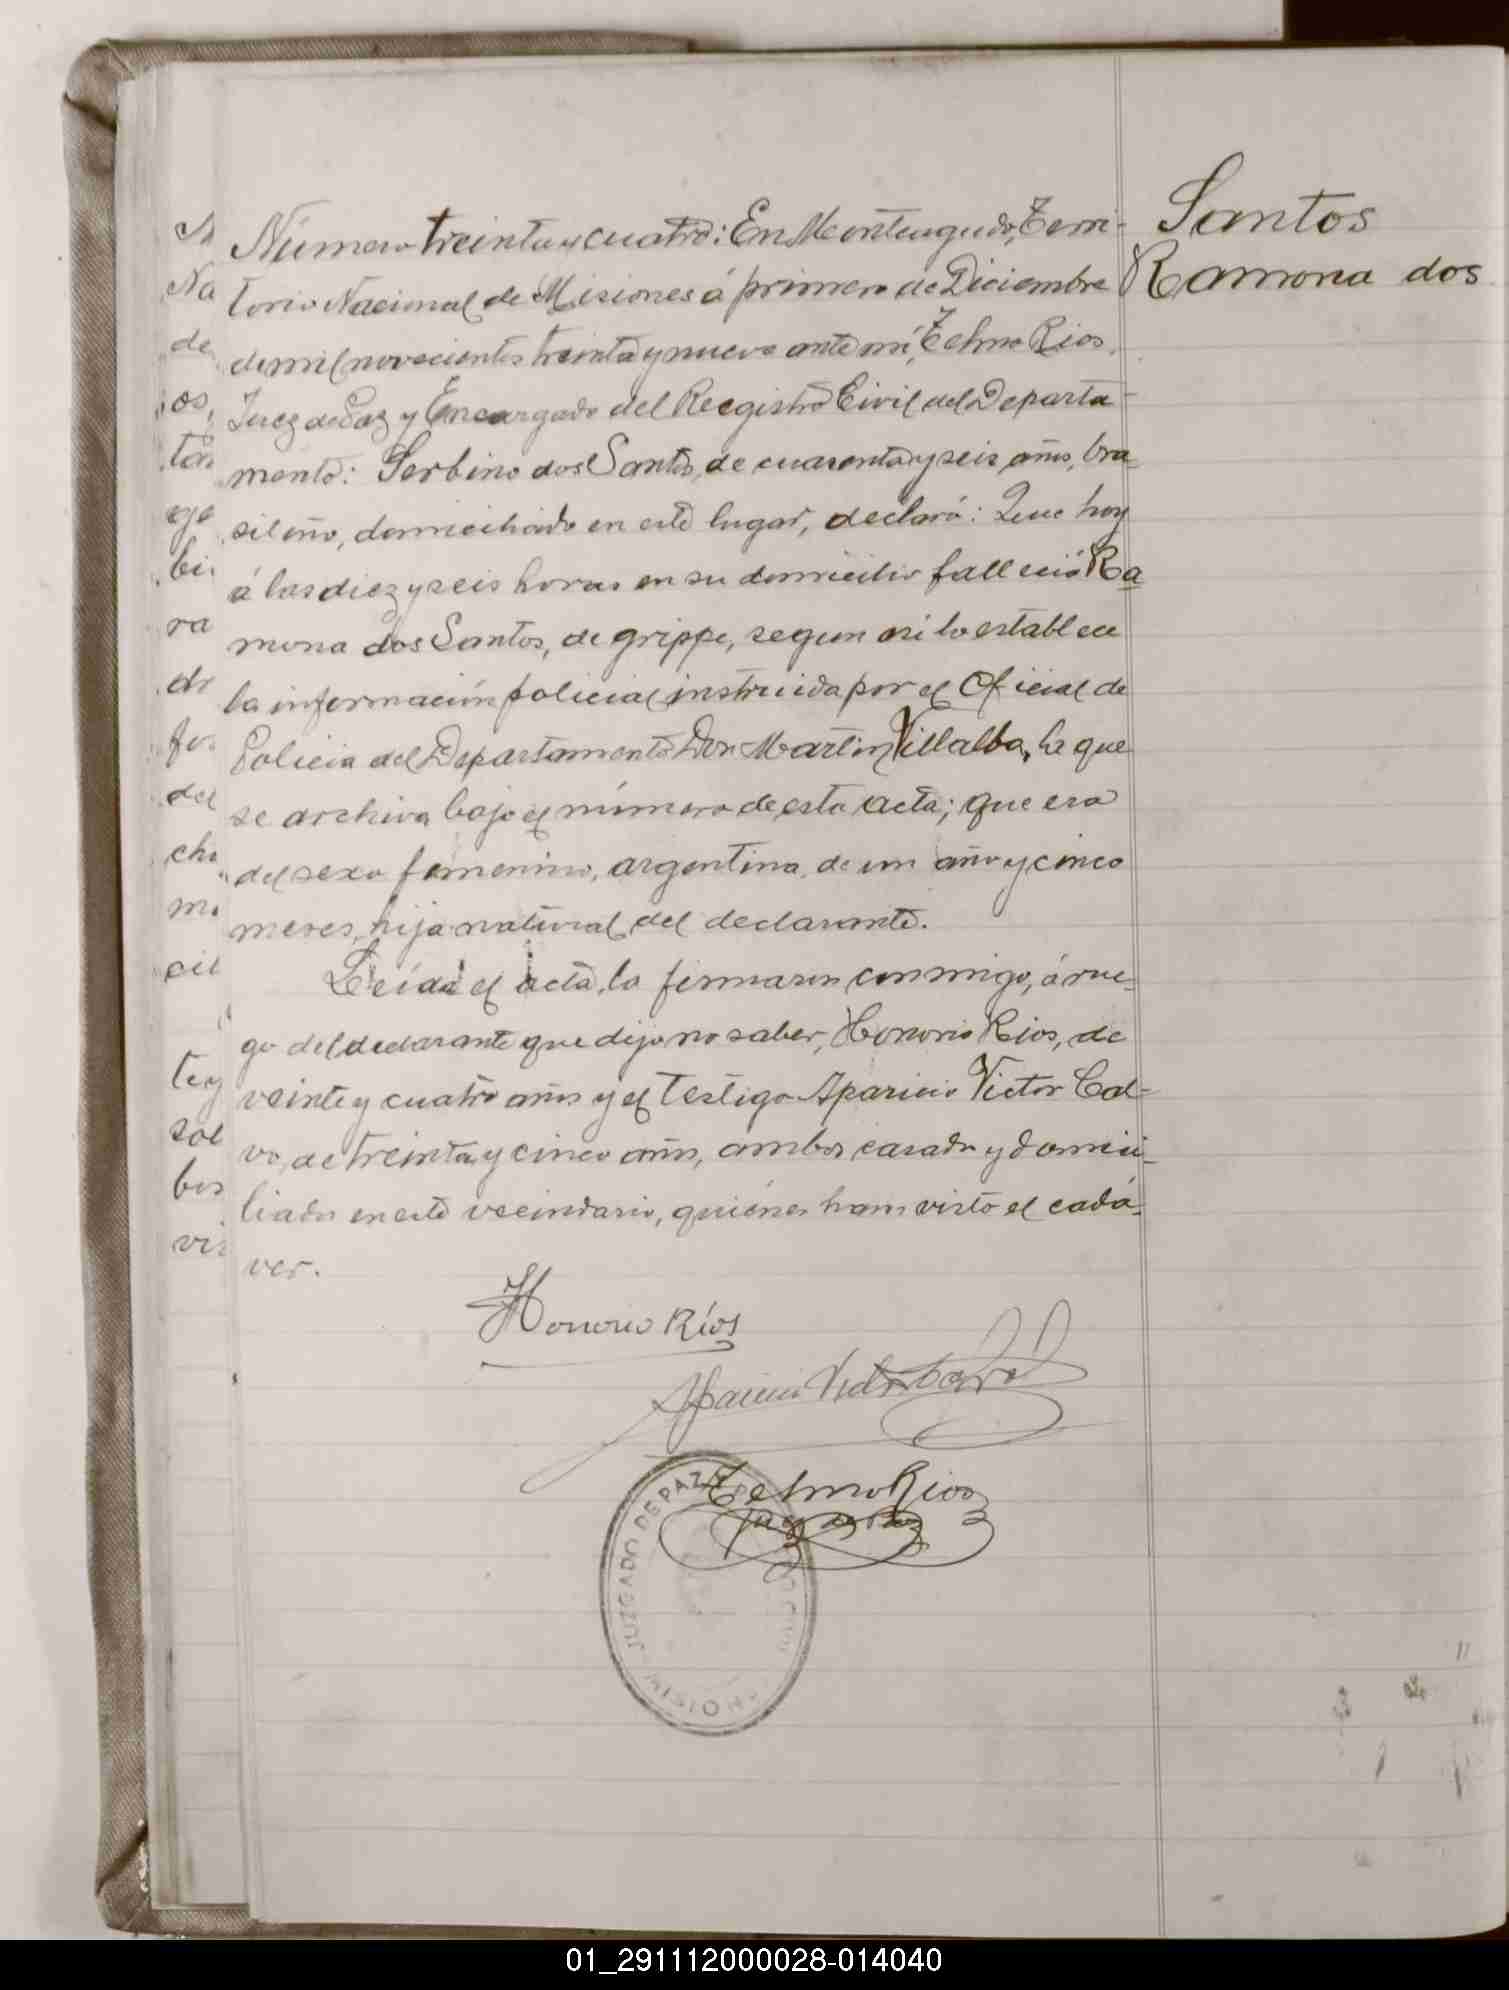 Santos
Ramona dos
Número treinta y cuatro: En Monteagudo, Terri-
torio Nacional de Misiones á primero de Diciembre
de mil novecientos treinta y nueve ante mí, Telmo Rios,
Juez de Paz y Encargado del Reegistro Civil del Departa-
mento: Serbino dos Santos, de cuarenta y seis años, bra-
sileño, domiciliado en este lugar, declaró: Que hoy
á las diez y seis horas en su domicilio falleció Ra-
mona dos Santos, de grippe, segun asi lo establece
la información policial instruida por el Oficial de
Policia del Departamento Don Martin Villalba, la que
se archiva bajo el número de esta acta; que era
del sexo femenino, argentina, de un año y cinco
meses, hija natural del declarante.
Leída el acta, la firmaron conmigo, á rue-
go del declarante que dijo no saber, Honorio Rios, de
veinte y cuatro años y el testigo Aparicio Victor Cal-
vo, de treinta y cinco años, ambos casados y domici-
liados en este vecindario, quiénes han visto el cadá-
ver.
Honorio Ríos
Aparicio Victor Calvo
Telmo Rios
Juez de Paz
JUZGADO DE PAZ
MISIONES
N
Na
de
os,
tar
ge
bi
ra
dr
fu
del
che
m
cil
te y
sol
bos
vis
01_291112000028-014040